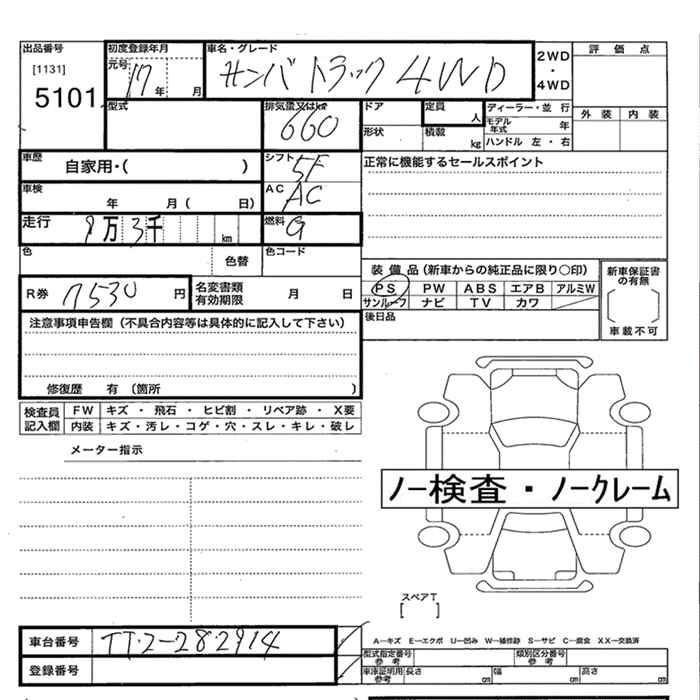 出品番号 初度登録年月 車名・グレード 2WD・4WD 評価点
[1131] 元号 17年 月 サンバトラック 4WD
5101 型式 排気量又はkw 660 ドア 定員 人 ディーラー・並行 外装 内装
形状 積載 kg モデル年式 年
ハンドル 左・右
車歴 自家用・( ) シフト 5F 正常に機能するセールスポイント
車検 年 月( 日) AC AC
走行 万 3千 km 燃料 G
色 色替 色コード
装備品(新車からの純正品に限り○印) 新車保証書の有無
R券 7530円 名変書類有効期限 月 日 PS PW ABS エアB アルミW
サンルーフ ナビ TV カワ
注意事項申告欄(不具合内容等は具体的に記入して下さい) 後日品 車載不可
修復歴 有(箇所 )
検査員記入欄 FW キズ・飛石・ヒビ割・リペア跡・X要
内装 キズ・汚レ・コゲ・穴・スレ・キレ・破レ
メーター指示
ノー検査・ノークレーム
スペアT
[ ]
車台番号 TT2-282914 A−キズ E−エクボ U−凹み W−補修跡 S−サビ C−腐食 XX−交換済
型式指定番号 参考 類別区分番号 参考
登録番号 車庫証明用 参考 長さ cm 幅 cm 高さ cm